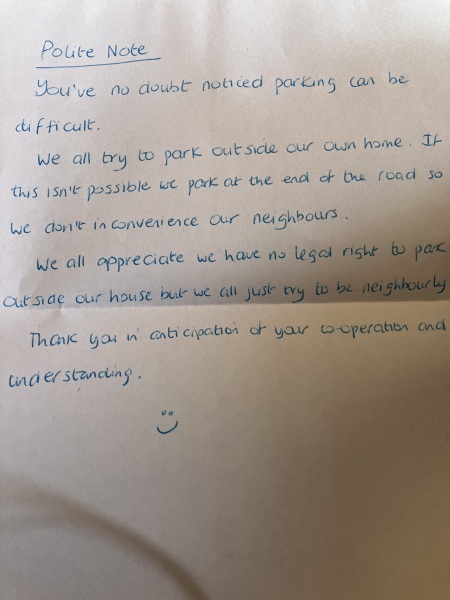 Polite Note
You've no doubt noticed parking can be
difficult.
We all try to park outside our own home. If
this isn't possible we park at the end of the road so
we don't inconvenience our neighbours.
We all appreciate we have no legal right to park
outside our house but we all just try to be neighbourly
Thank you in anticipation of your co-operation and
understanding.